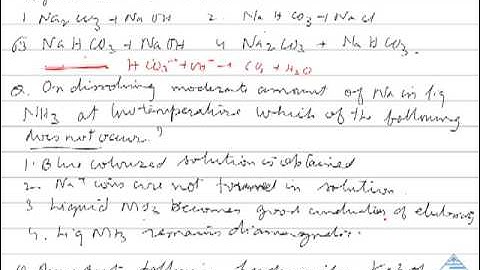 1 Na2CO3 + NaOH 2. NaHCO3 + NaCl
3 NaHCO3 + NaOH 4 Na2CO3 + NaHCO3.
HCO3⁻ + OH⁻ → CO3 + H2O
Q. On dissolving moderate amount of Na in liq
NH3 at low temperature which of the following
does not occur?
1. Blue coloured solution is obtained
2. Na+ ions are not formed in solution
3 Liquid NH3 becomes good conductor of electricity
4. Liq NH3 remains diamagnetic.
following